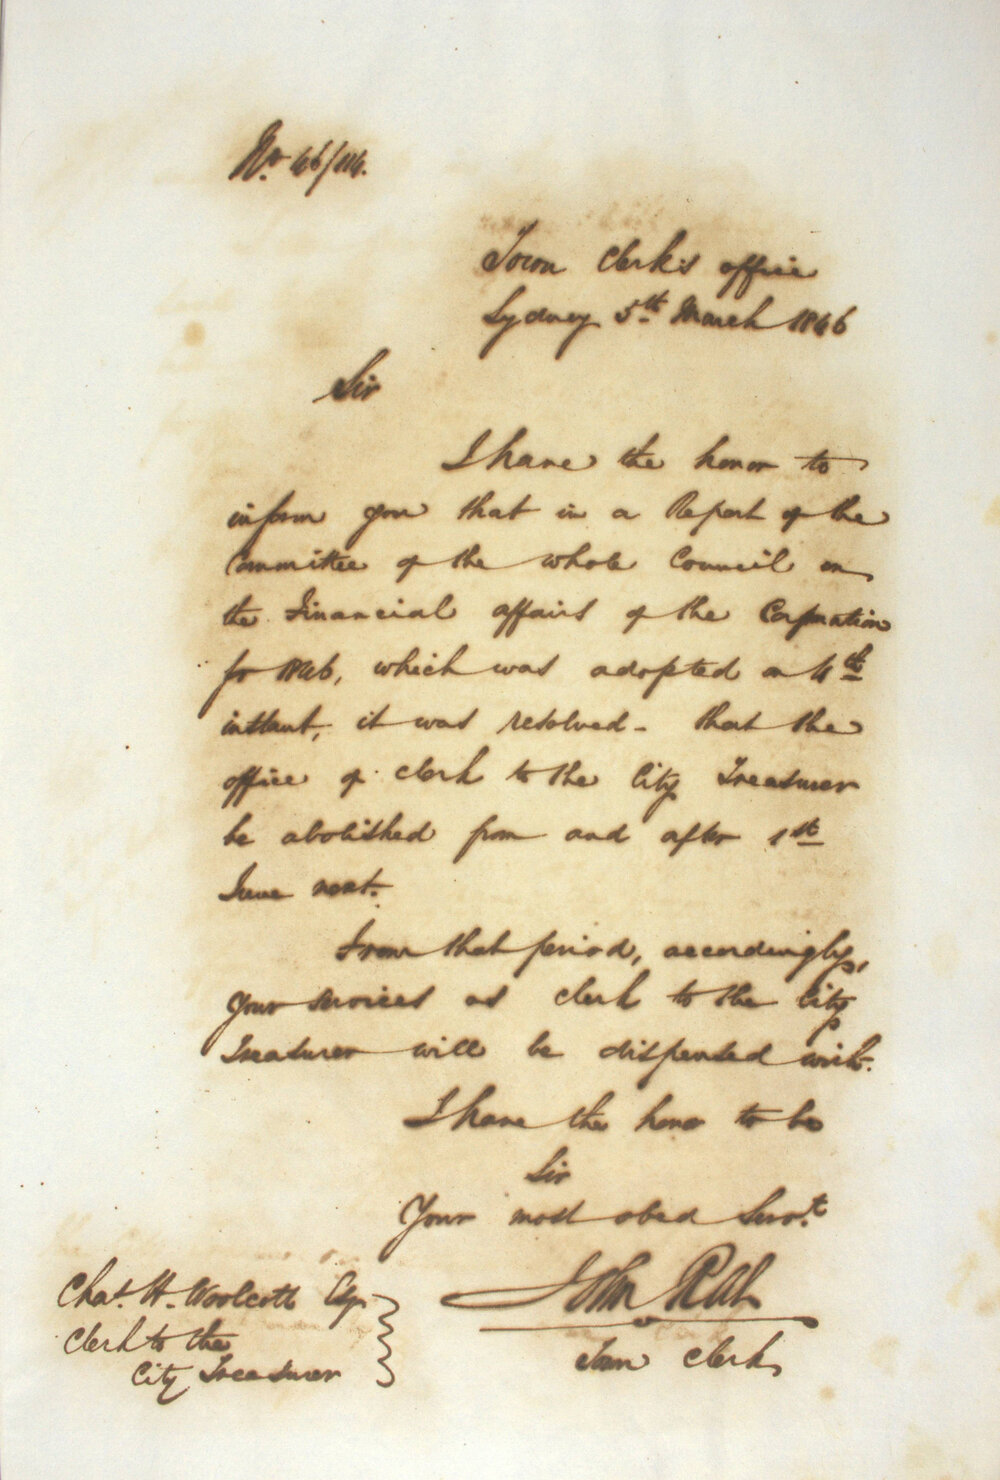 No. 46/114.
Town Clerk's office
Sydney 5th March 1846
Sir
I have the honor to
inform you that in a Report of the
Committee of the whole Council on
the Financial affairs of the Corporation
for 1846, which was adopted on 4th
instant, it was resolved - that the
office of clerk to the City Treasurer
be abolished from and after 1st
June next.
From that period, accordingly,
your services as clerk to the City
Treasurer will be dispensed with.
I have the honor to be
Sir
Your most obed Servt.
John Rae
Town Clerk
Chas. H. Woolcott Esqr
Clerk to the
City Treasurer